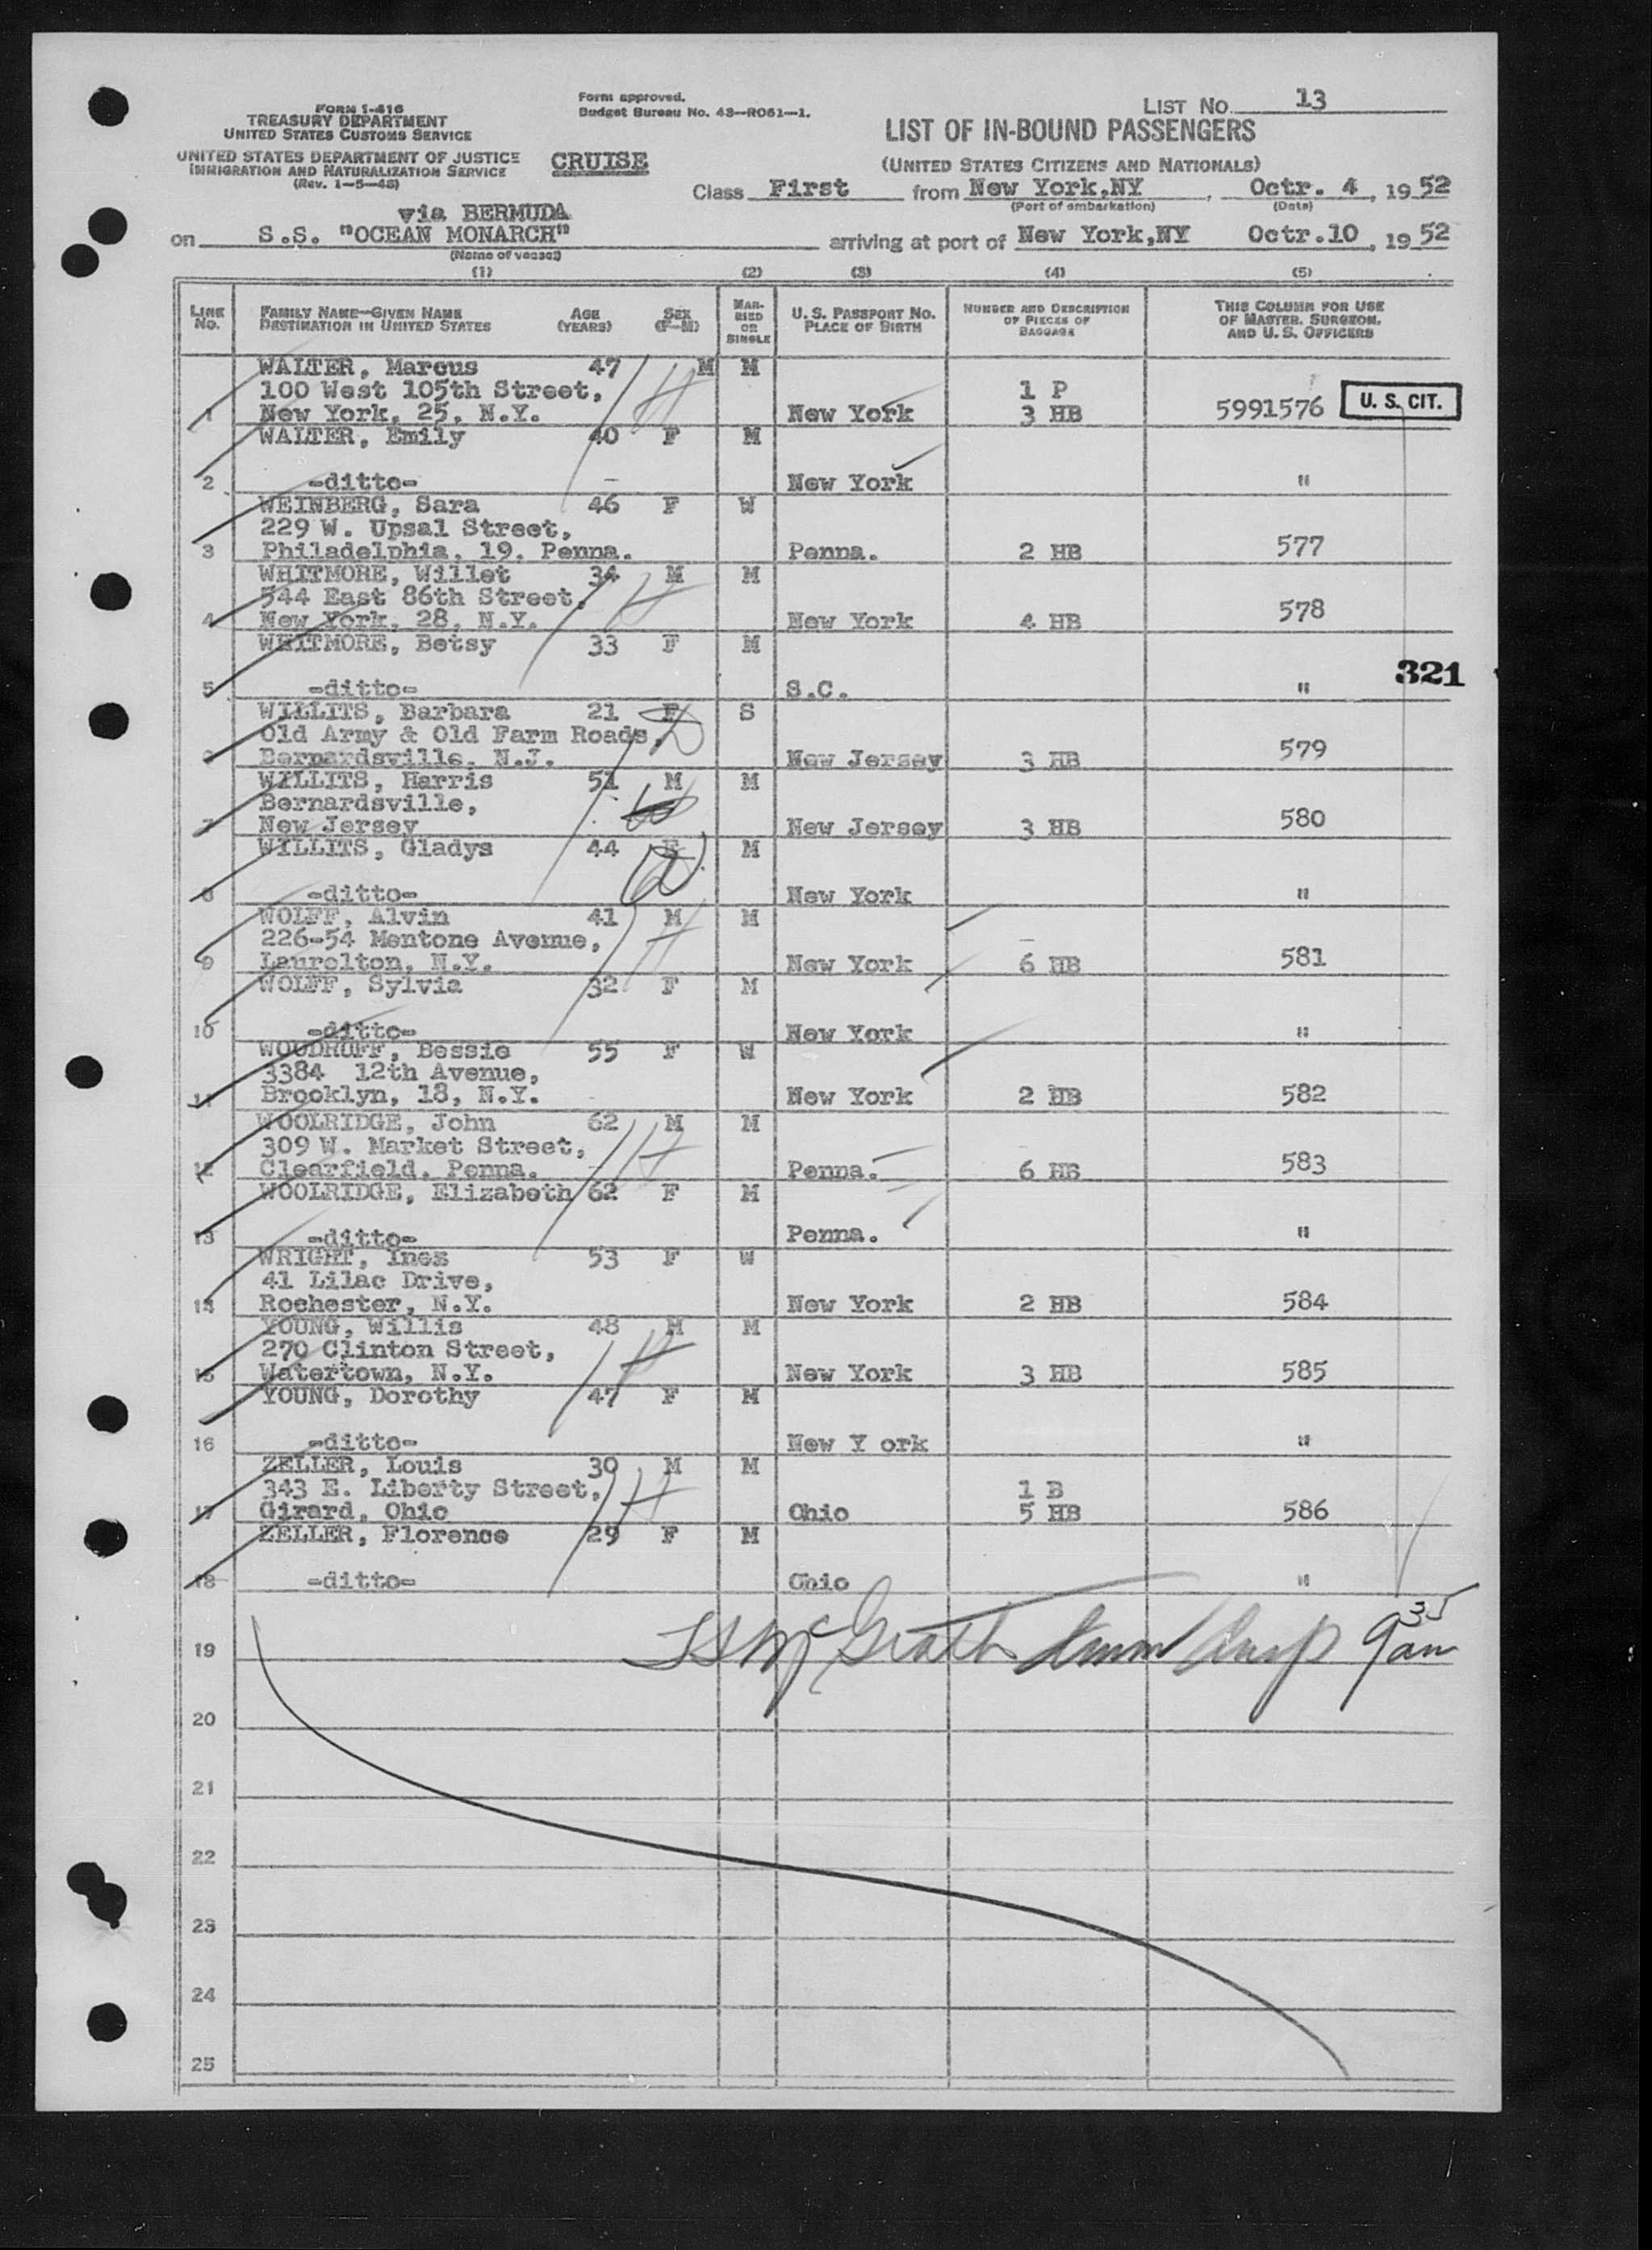 FORM I-416
TREASURY DEPARTMENT
UNITED STATES CUSTOMS SERVICE
UNITED STATES DEPARTMENT OF JUSTICE
IMMIGRATION AND NATURALIZATION SERVICE
(Rev. 1-5-48)
Form approved.
Budget Bureau No. 43—R061—1.
CRUISE
LIST No. 13
LIST OF IN-BOUND PASSENGERS
(UNITED STATES CITIZENS AND NATIONALS)
Class First from New York,NY, Octr. 4, 1952
(Port of embarkation) (Date)
via BERMUDA
on S.S. "OCEAN MONARCH" arriving at port of New York,NY Octr.10, 1952
(Name of vessel)
(1) (2) (3) (4) (5)
LINE No. FAMILY NAME—GIVEN NAME DESTINATION IN UNITED STATES AGE (YEARS) SEX (F—M) MARRIED OR SINGLE U. S. PASSPORT No. PLACE OF BIRTH NUMBER AND DESCRIPTION OF PIECES OF BAGGAGE THIS COLUMN FOR USE OF MASTER, SURGEON, AND U. S. OFFICERS
WALTER, Marcus 47 M M
100 West 105th Street, 1 P
1 New York, 25, N.Y. New York 3 HB 5991576 U. S. CIT.
WALTER, Emily 40 F M
2 -ditto- New York "
WEINBERG, Sara 46 F W
229 W. Upsal Street,
3 Philadelphia, 19, Penna. Penna. 2 HB 577
WHITMORE, Willet 34 M M
544 East 86th Street,
4 New York, 28, N.Y. New York 4 HB 578
WHITMORE, Betsy 33 F M
321
5 -ditto- S.C. "
WILLITS, Barbara 21 F S
Old Army & Old Farm Roads,
6 Bernardsville, N.J. New Jersey 3 HB 579
WILLITS, Harris 51 M M
Bernardsville,
7 New Jersey New Jersey 3 HB 580
WILLITS, Gladys 44 F M
8 -ditto- New York "
WOLFF, Alvin 41 M M
226-54 Mentone Avenue,
9 Laurelton, N.Y. New York 6 HB 581
WOLFF, Sylvia 32 F M
10 -ditto- New York "
WOODRUFF, Bessie 55 F W
3384 12th Avenue,
11 Brooklyn, 18, N.Y. New York 2 HB 582
WOOLRIDGE, John 62 M M
309 W. Market Street,
12 Clearfield, Penna. Penna. 6 HB 583
WOOLRIDGE, Elizabeth 62 F M
13 -ditto- Penna. "
WRIGHT, Inez 53 F W
41 Lilac Drive,
14 Rochester, N.Y. New York 2 HB 584
YOUNG, Willis 48 M M
270 Clinton Street,
15 Watertown, N.Y. New York 3 HB 585
YOUNG, Dorothy 47 F M
16 -ditto- New Y ork "
ZELLER, Louis 30 M M
343 E. Liberty Street, 1 B
17 Girard, Ohio Ohio 5 HB 586
ZELLER, Florence 29 F M
18 -ditto- Ohio "
19 McGrath Imm Insp 9 35 am
20
21
22
23
24
25